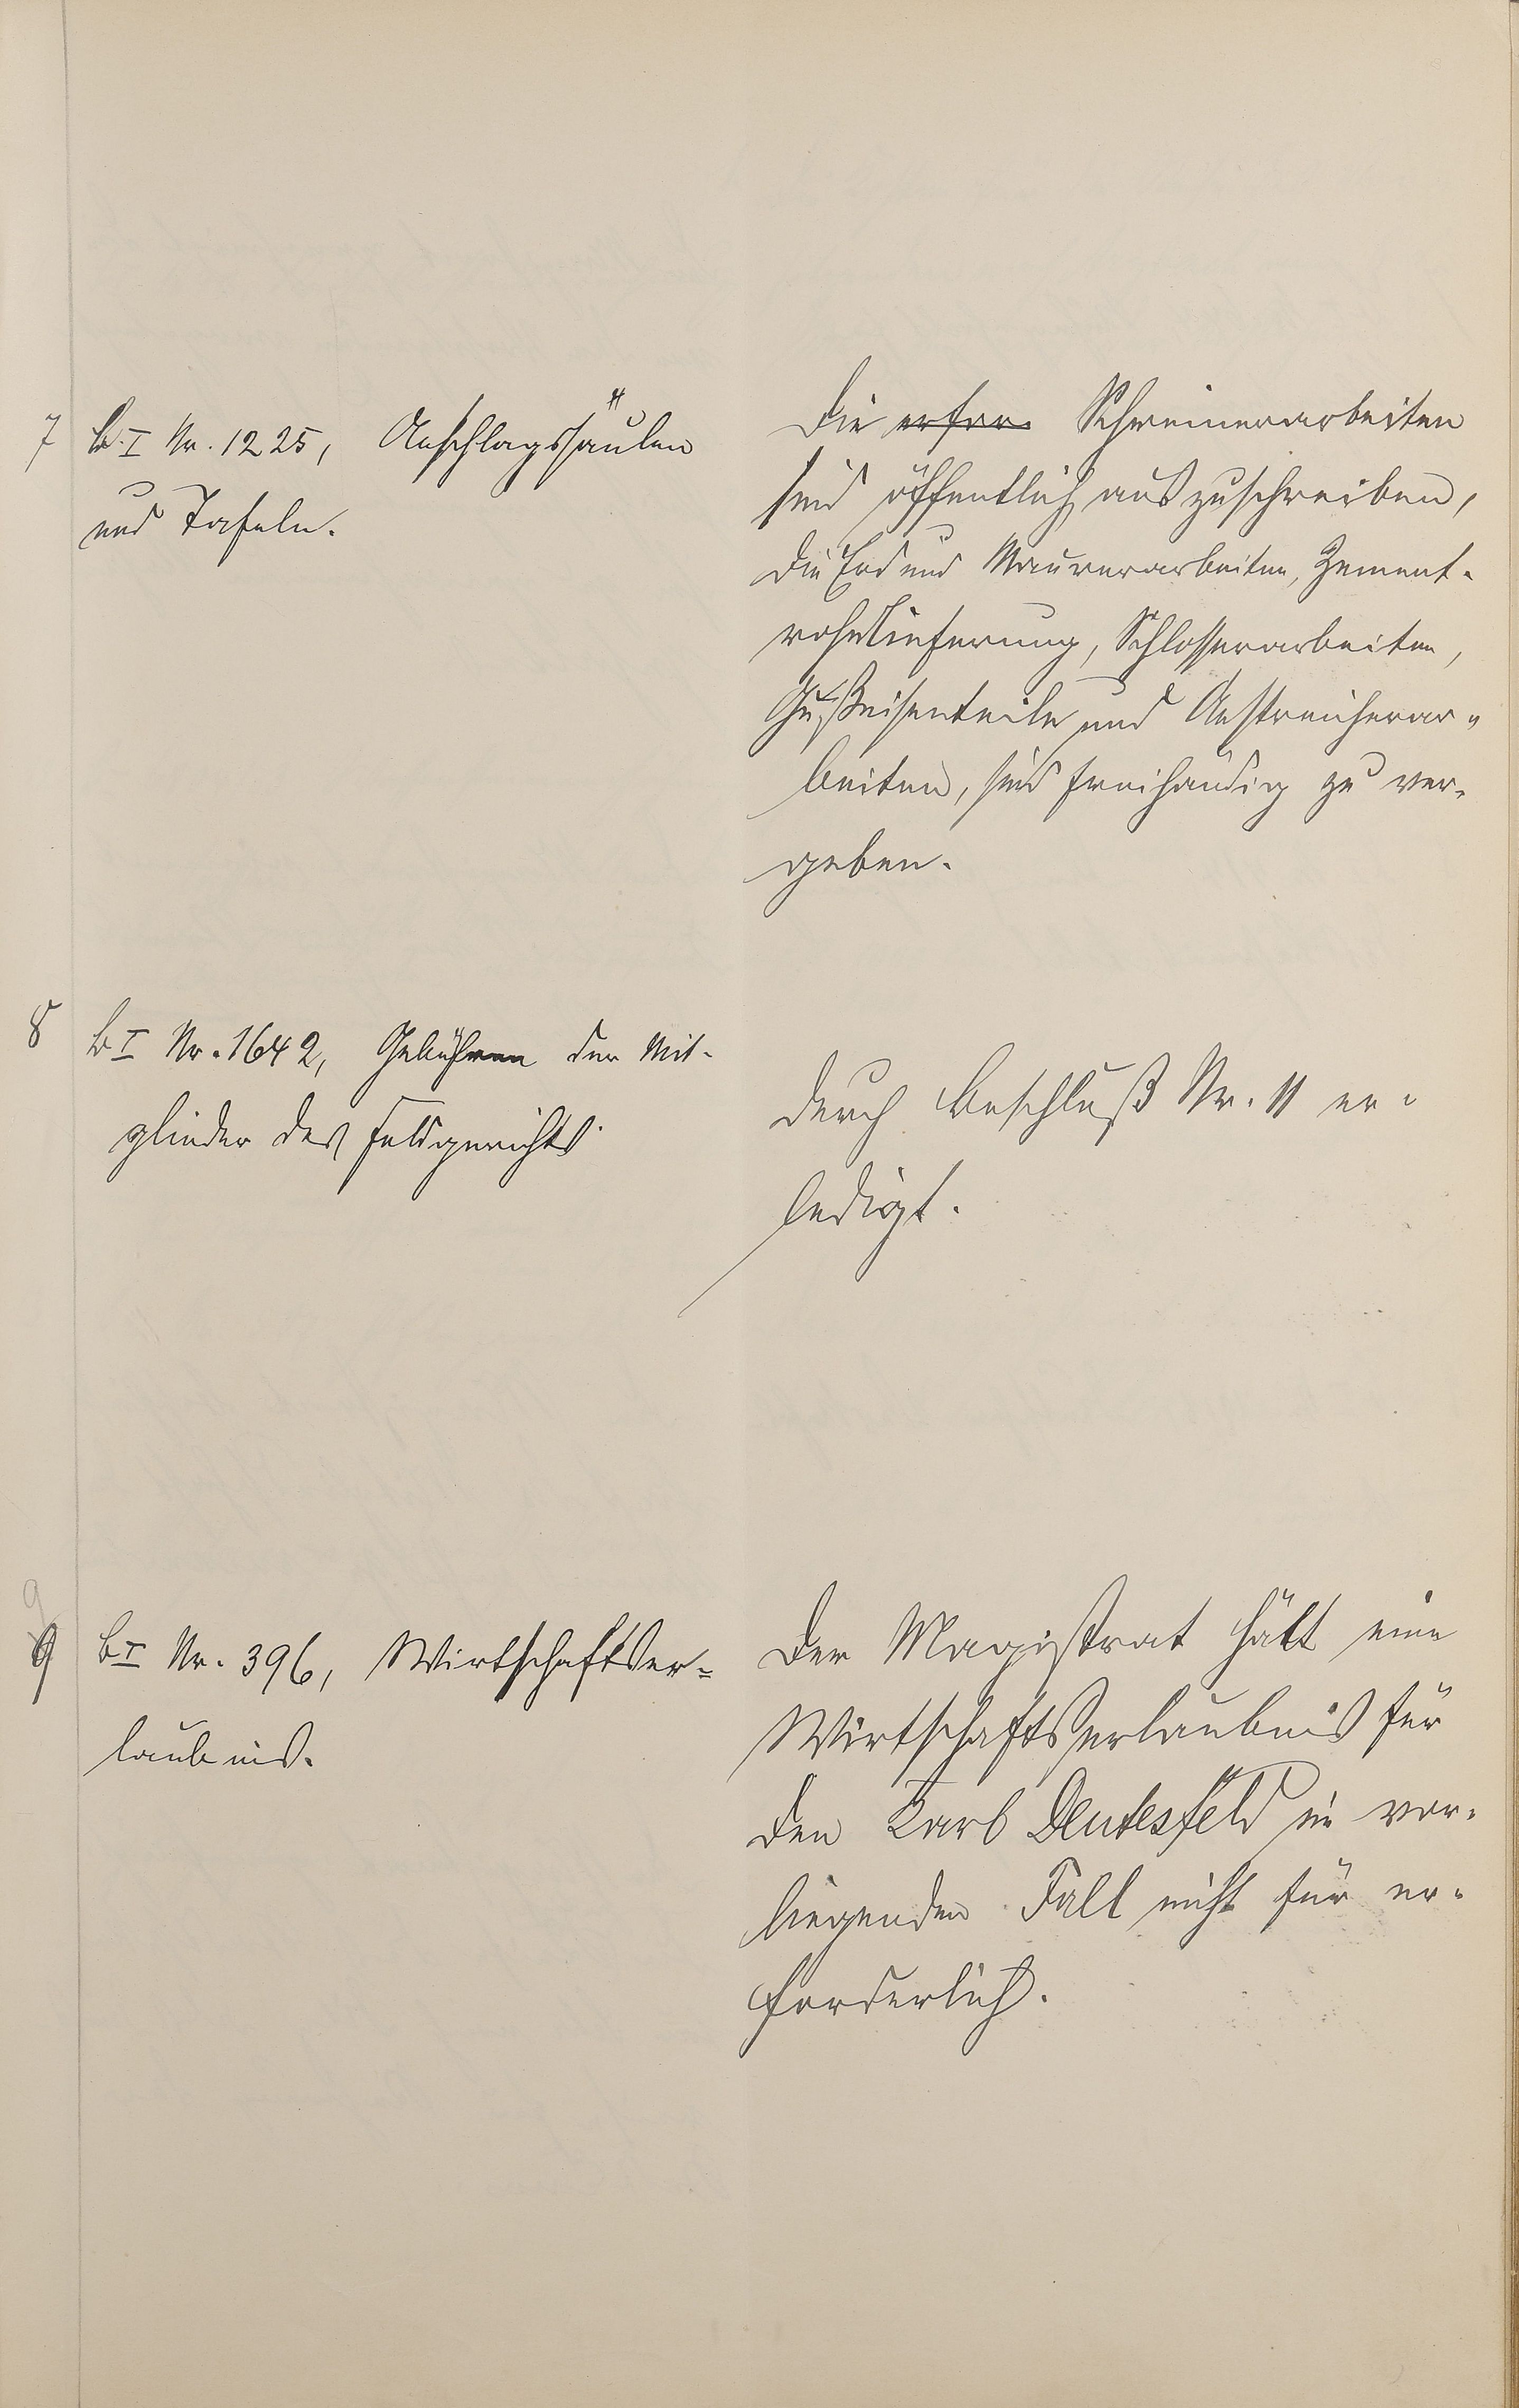 7 B.I Nr. 1225, Anschlagssäulen
und Tafeln.
Die erfor. Schreinerarbeiten
sind öffentlich auszuschreiben,
die Erd und Maurerarbeiten, Zement-
rohrlieferung, Schlosserarbeiten,
Gußeisenteile und Anstreicherar-
beiten, sind freihändig zu ver-
geben.
8 B I Nr. 1642, Gebühren der Mit-
glieder des Feldgerichts.
Durch Beschluß Nr. 11 er-
ledigt.
9
9 B I Nr. 396, Wirtschaftser-
laubnis.
Der Magistrat hält eine
Wirtschaftserlaubnis für
den Karl Deutesfeld in vor-
liegenden Fall nicht für er-
forderlich.